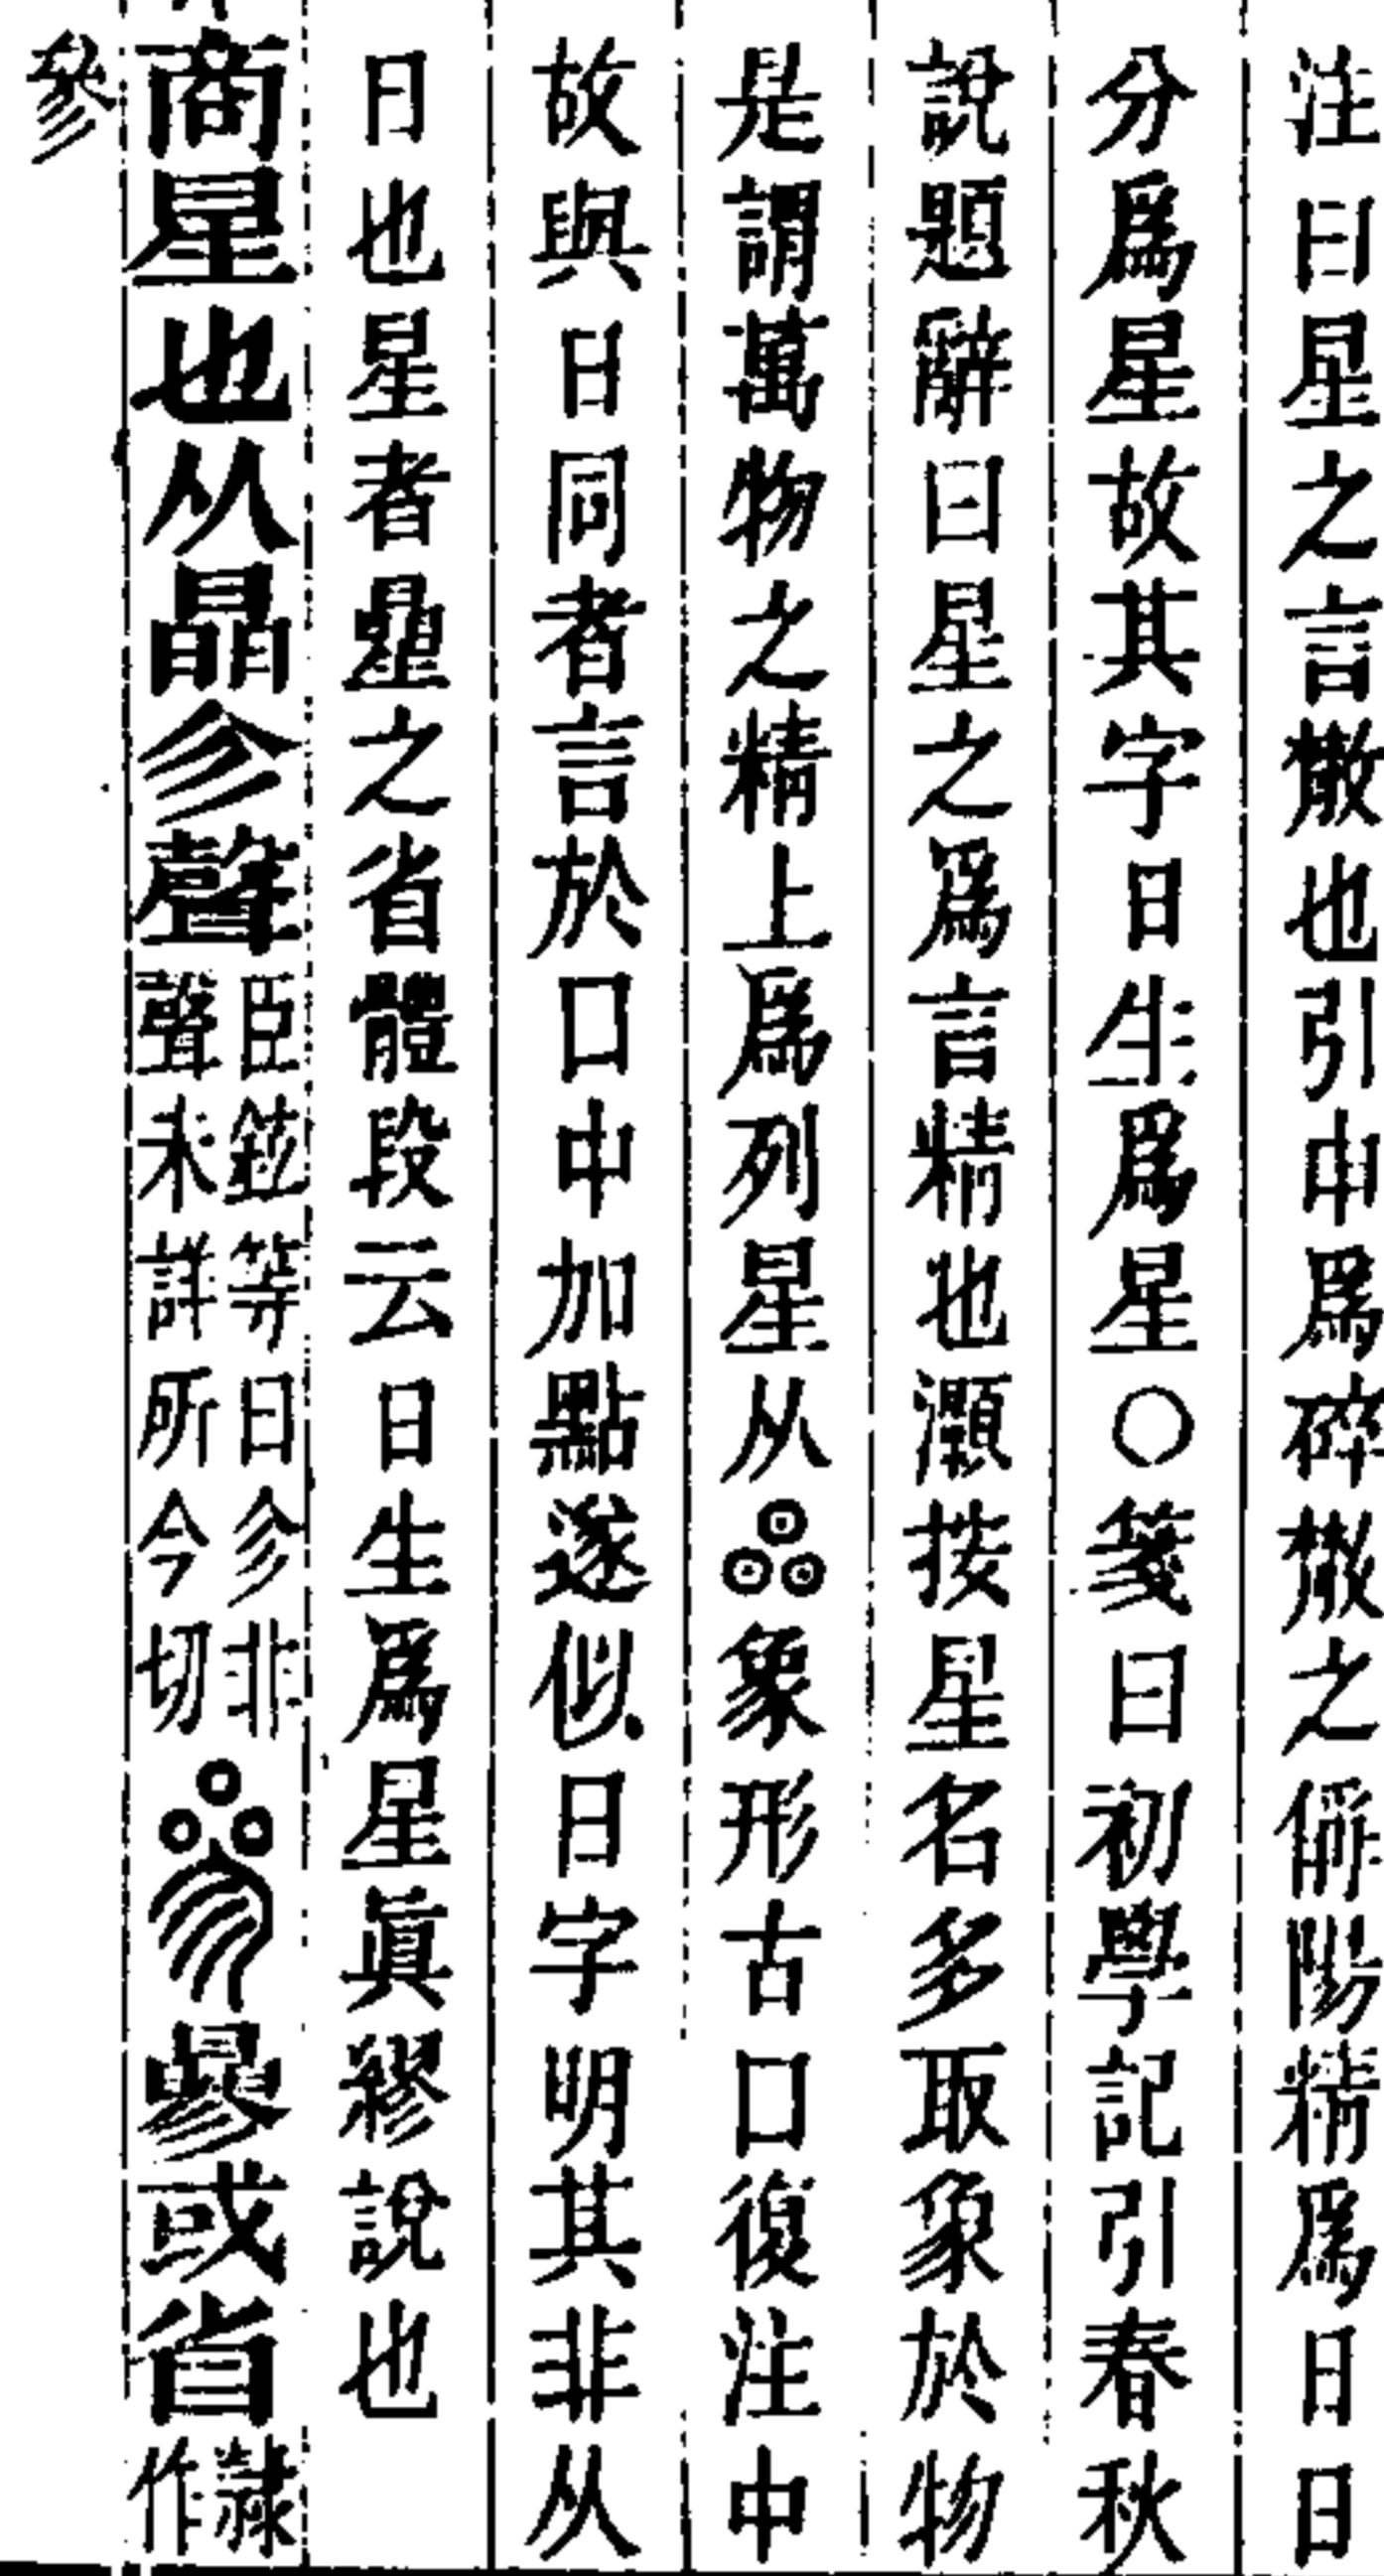 注曰星之言散也引申爲碎散之偁陽精爲日日
分爲星故其字日生爲星○箋曰初學記引春秋
說題辭曰星之爲言精也灝按星名多取象於物
是謂萬物之精上爲列星从象形古口復注中
故與日同者言於口中加點遂似日字明其非从
日也星者曐之省體段云日生爲星真繆說也
商星也从晶㐱聲
臣鉉等曰㐱非
聲未詳所今切
曑或省
隸作
參